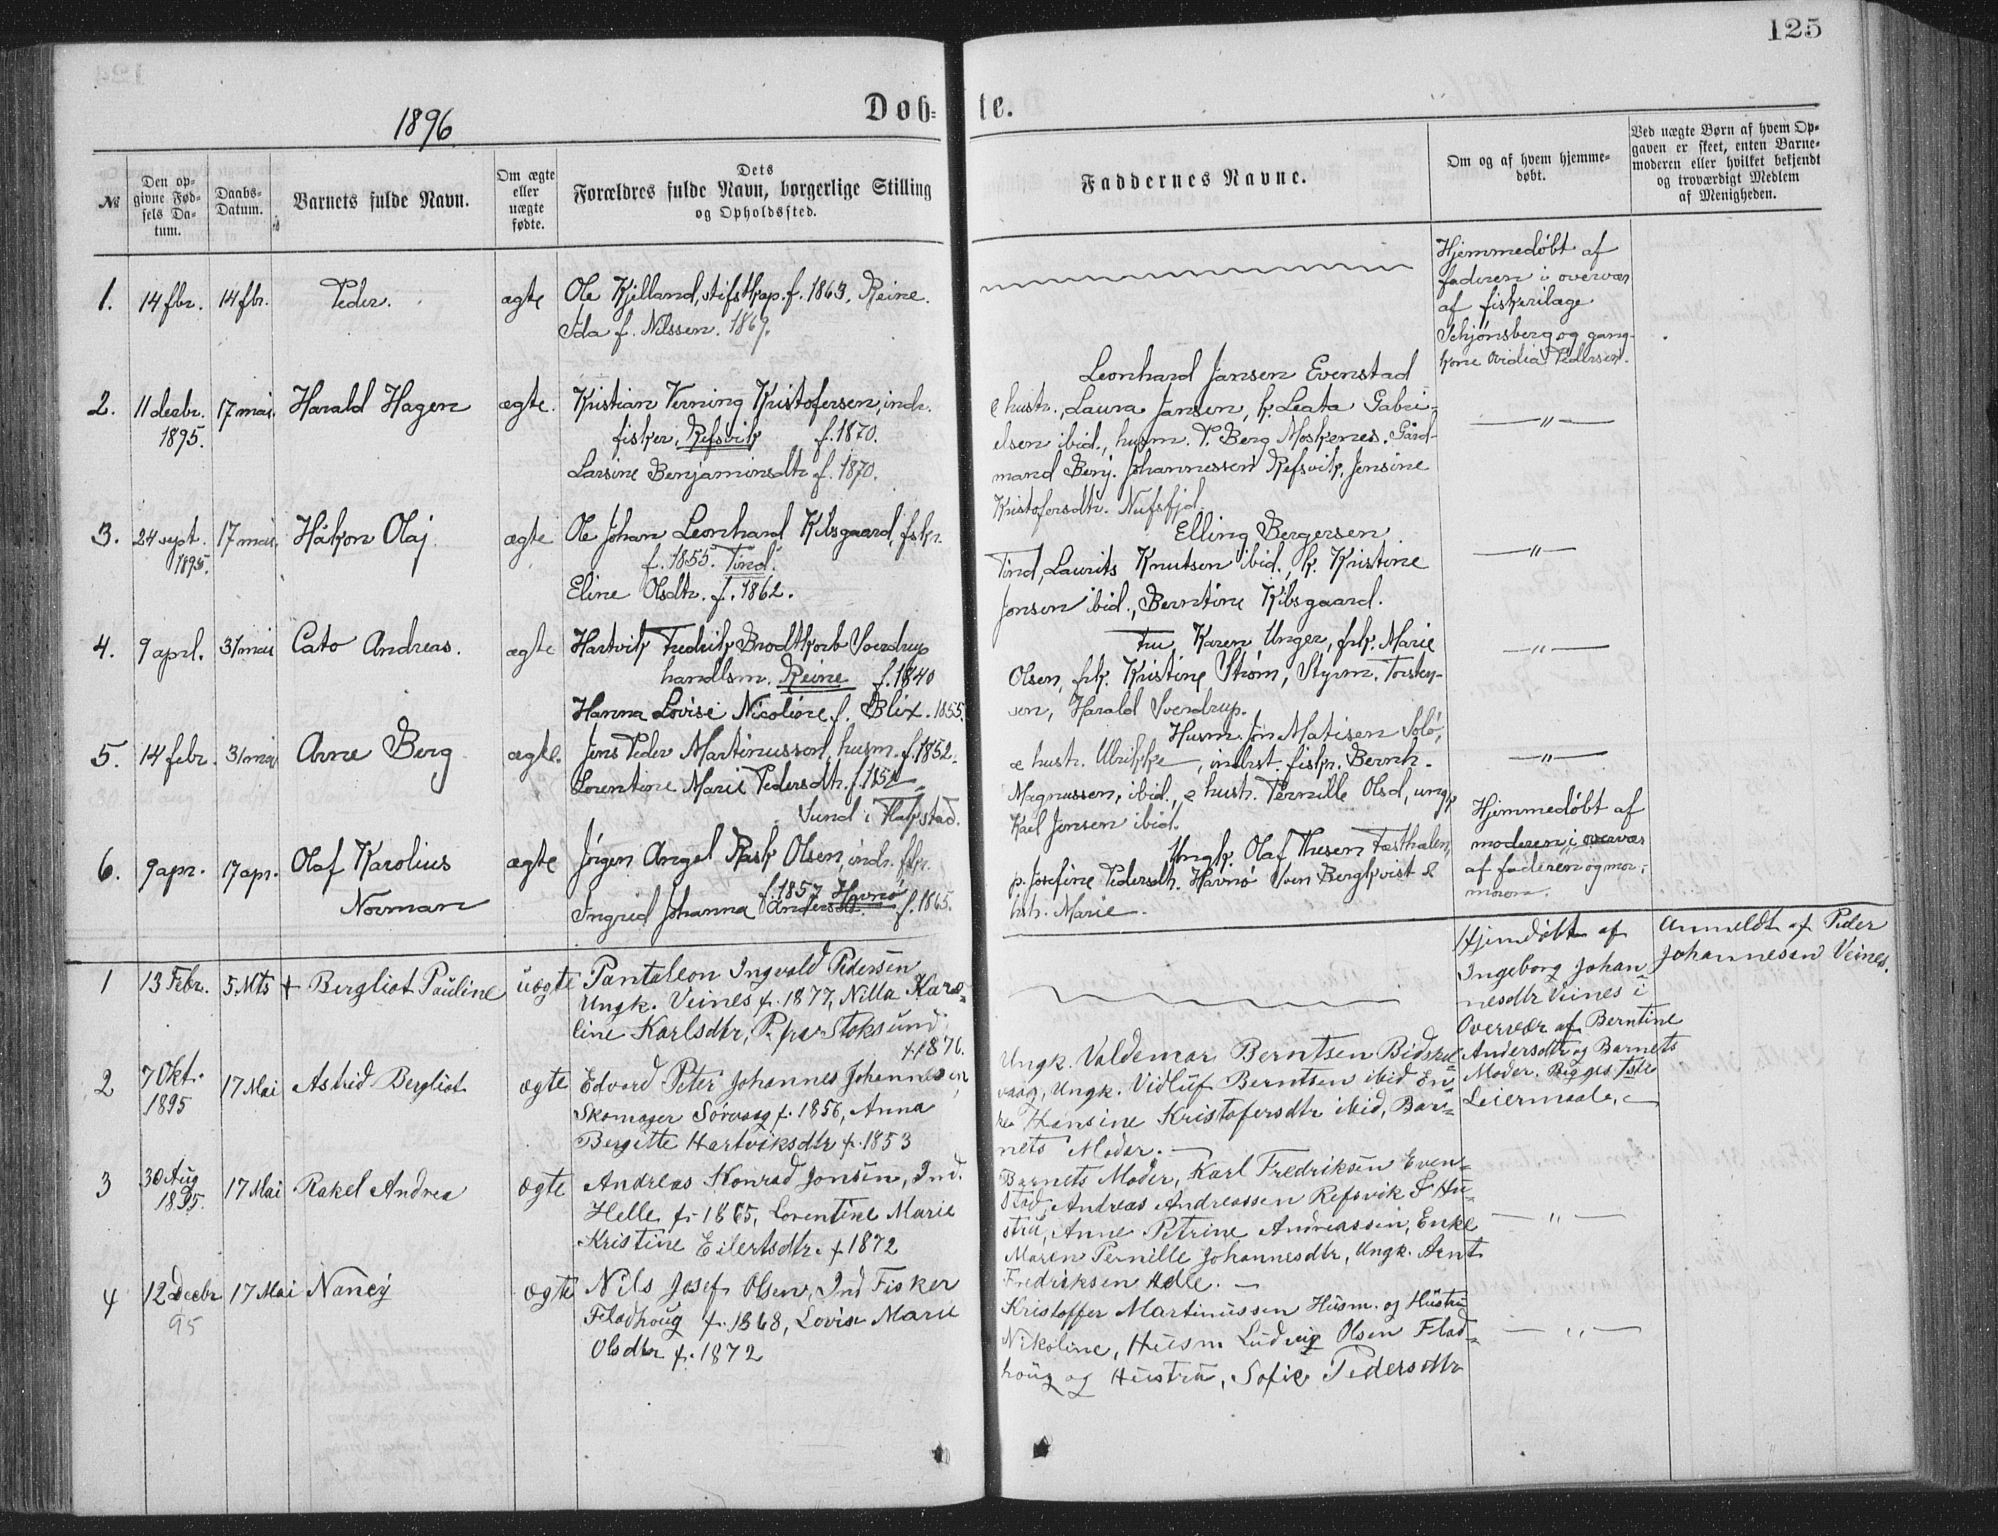 125
1896
Døb-
te.
№
Den op-
givne Fød-
sels Da-
tum.
Daabs-
Datum.
Barnets fulde Navn.
Om ægte
eller
uægte
fødte.
Dets
Forældres fulde Navn, borgerlige Stilling
og Opholdssted.
Faddernes Navne.
Om og af hvem hjemme-
døbt.
Ved uægte Børn af hvem Op-
gaven er skeet, enten Barne-
moderen eller hvilket bekjendt
og troværdigt Medlem
af Menigheden.
1. 14 fbr. 14 fbr. Peder. ægte
Ole Kjelland, stiftskap. f. 1863. Reine.
Ida f. Nilssen. 1869.
Hjemmedøbt af
faderen i overvær
af fiskerilæge
Schjønsberg og gang-
kone Ovidia Pedersen.
2. 11 decbr. 1895. 17 mai. Harald Hagen ægte.
Kristian Verning Kristofersen, indr.
fisker, Refsvik f. 1870.
Larsine Benjaminsdtr f. 1870.
Leonhard Jansen Evenstad
& hustr., Laura Jansen, k. Leata Gabri-
elsen ibid., husm. P. Berg Moskenes. Gård-
mand Benj. Johannessen Refsvik, Jensine
Kristofersdtr. Nufsfjd.
— " —
3. 24 sept. 1895. 17 mai. Håkon Olaj ægte
Ole Johan Leonhard Kibsgaard, fskr.
f. 1855. Tind.
Eline Olsdtr. f. 1862.
Elling Bergersen
Tind, Laurits Knutsen ibid., k. Kristine
Jonsen ibid., Berntine Kibsgaard.
— " —
4. 9 aprl. 31 mai Cato Andreas. ægte
Hartvik Fredrik Brodtkorb Sverdrup
handlsm. Reine f. 1840
Hanna Lovise Nicoline f. Blix. 1855.
Fru Karen Unger, frk. Marie
Olsen, frk. Kristine Strøm, Styrm. Torsten-
sen, Harald Sverdrup.
— " —
5. 14 febr. 31 mai Arne Berg ægte.
Jens Peder Martinussen, husm. f. 1852.
Lorentine Marie Pedersdtr. f. 1852
Sund i Flakstad.
Husm. Jon Matisen Solö,
& hustr. Ulrikke, indrst. fiskr. Bernh.
Magnussen, ibid., & hustr. Pernille Olsd, ungk
Karl Jensen ibid.
— " —
6. 9 apr. 17 apr. Olaf Karolius
Norman ægte
Jörgen Angel Rask Olsen, indr. fskr.
f. 1857 Havnø
Ingrid Johanna Andersd. f. 1865.
Ungk. Olaf Thesen Fæsthælen,
p. Josefine Pedersdtr. Havnø Sven Bergkvist &
hstr. Marie.
Hjemmedøbt af
moderen i overvær
af faderen og mor-
moren.
1 13 Febr. 5 Mts + Bergliot Pauline uægte
Pantaleon Ingvald Pedersen
Ungk. Veines f. 1877, Nilla Karo-
line Karlsdtr, P. fra Stoksund
f 1876.
Hjemdöbt af
Ingeborg Johan-
nesdtr Veines i
Overvær af Berntine
Andersdtr og Barnets
Moder. Begges 1ste
Leiermaal. —
Anmeldt af Peder
Johannesen Veines.
2 7 Okt. 1895 17 Mai Astrid Bergliot ægte
Edvard Peter Johannes Johannesen,
Skomager Sörvaag f. 1856, Anna
Bergitte Hartviksdtr f. 1853
Ungk. Valdemar Berntsen Bidskel-
vaag, Ungk. Vidluf Berntsen ibid En-
ke Hansine Kristofersdtr ibid, Bar-
nets Moder. —
3 30 Aug 1895. 17 Mai Rakel Andrea ægte
Andreas Konrad Jonsen, Ind.
Helle f. 1865, Lorentine Marie
Kristine Eilertsdtr. f 1872
Barnets Moder, Karl Fredriksen Even-
stad, Andreas Andreassen Refsvik & Hu-
stru, Anne Petrine Andreassen, Enke
Maren Pernille Johannesdtr, Ungk. Arnt
Fredriksen Helle. —
— " —
4 12 Decbr 95 17 Mai Nancy ægte
Nils Josef Olsen, Ind Fisker
Fladhoug f. 1868, Lovise Marie
Olsdtr f. 1872
Kristoffer Martinussen Husm. og Hustru
Nikoline, Husm Ludvig Olsen Flad-
houg og Hustru, Sofie Pedersdtr
— " —